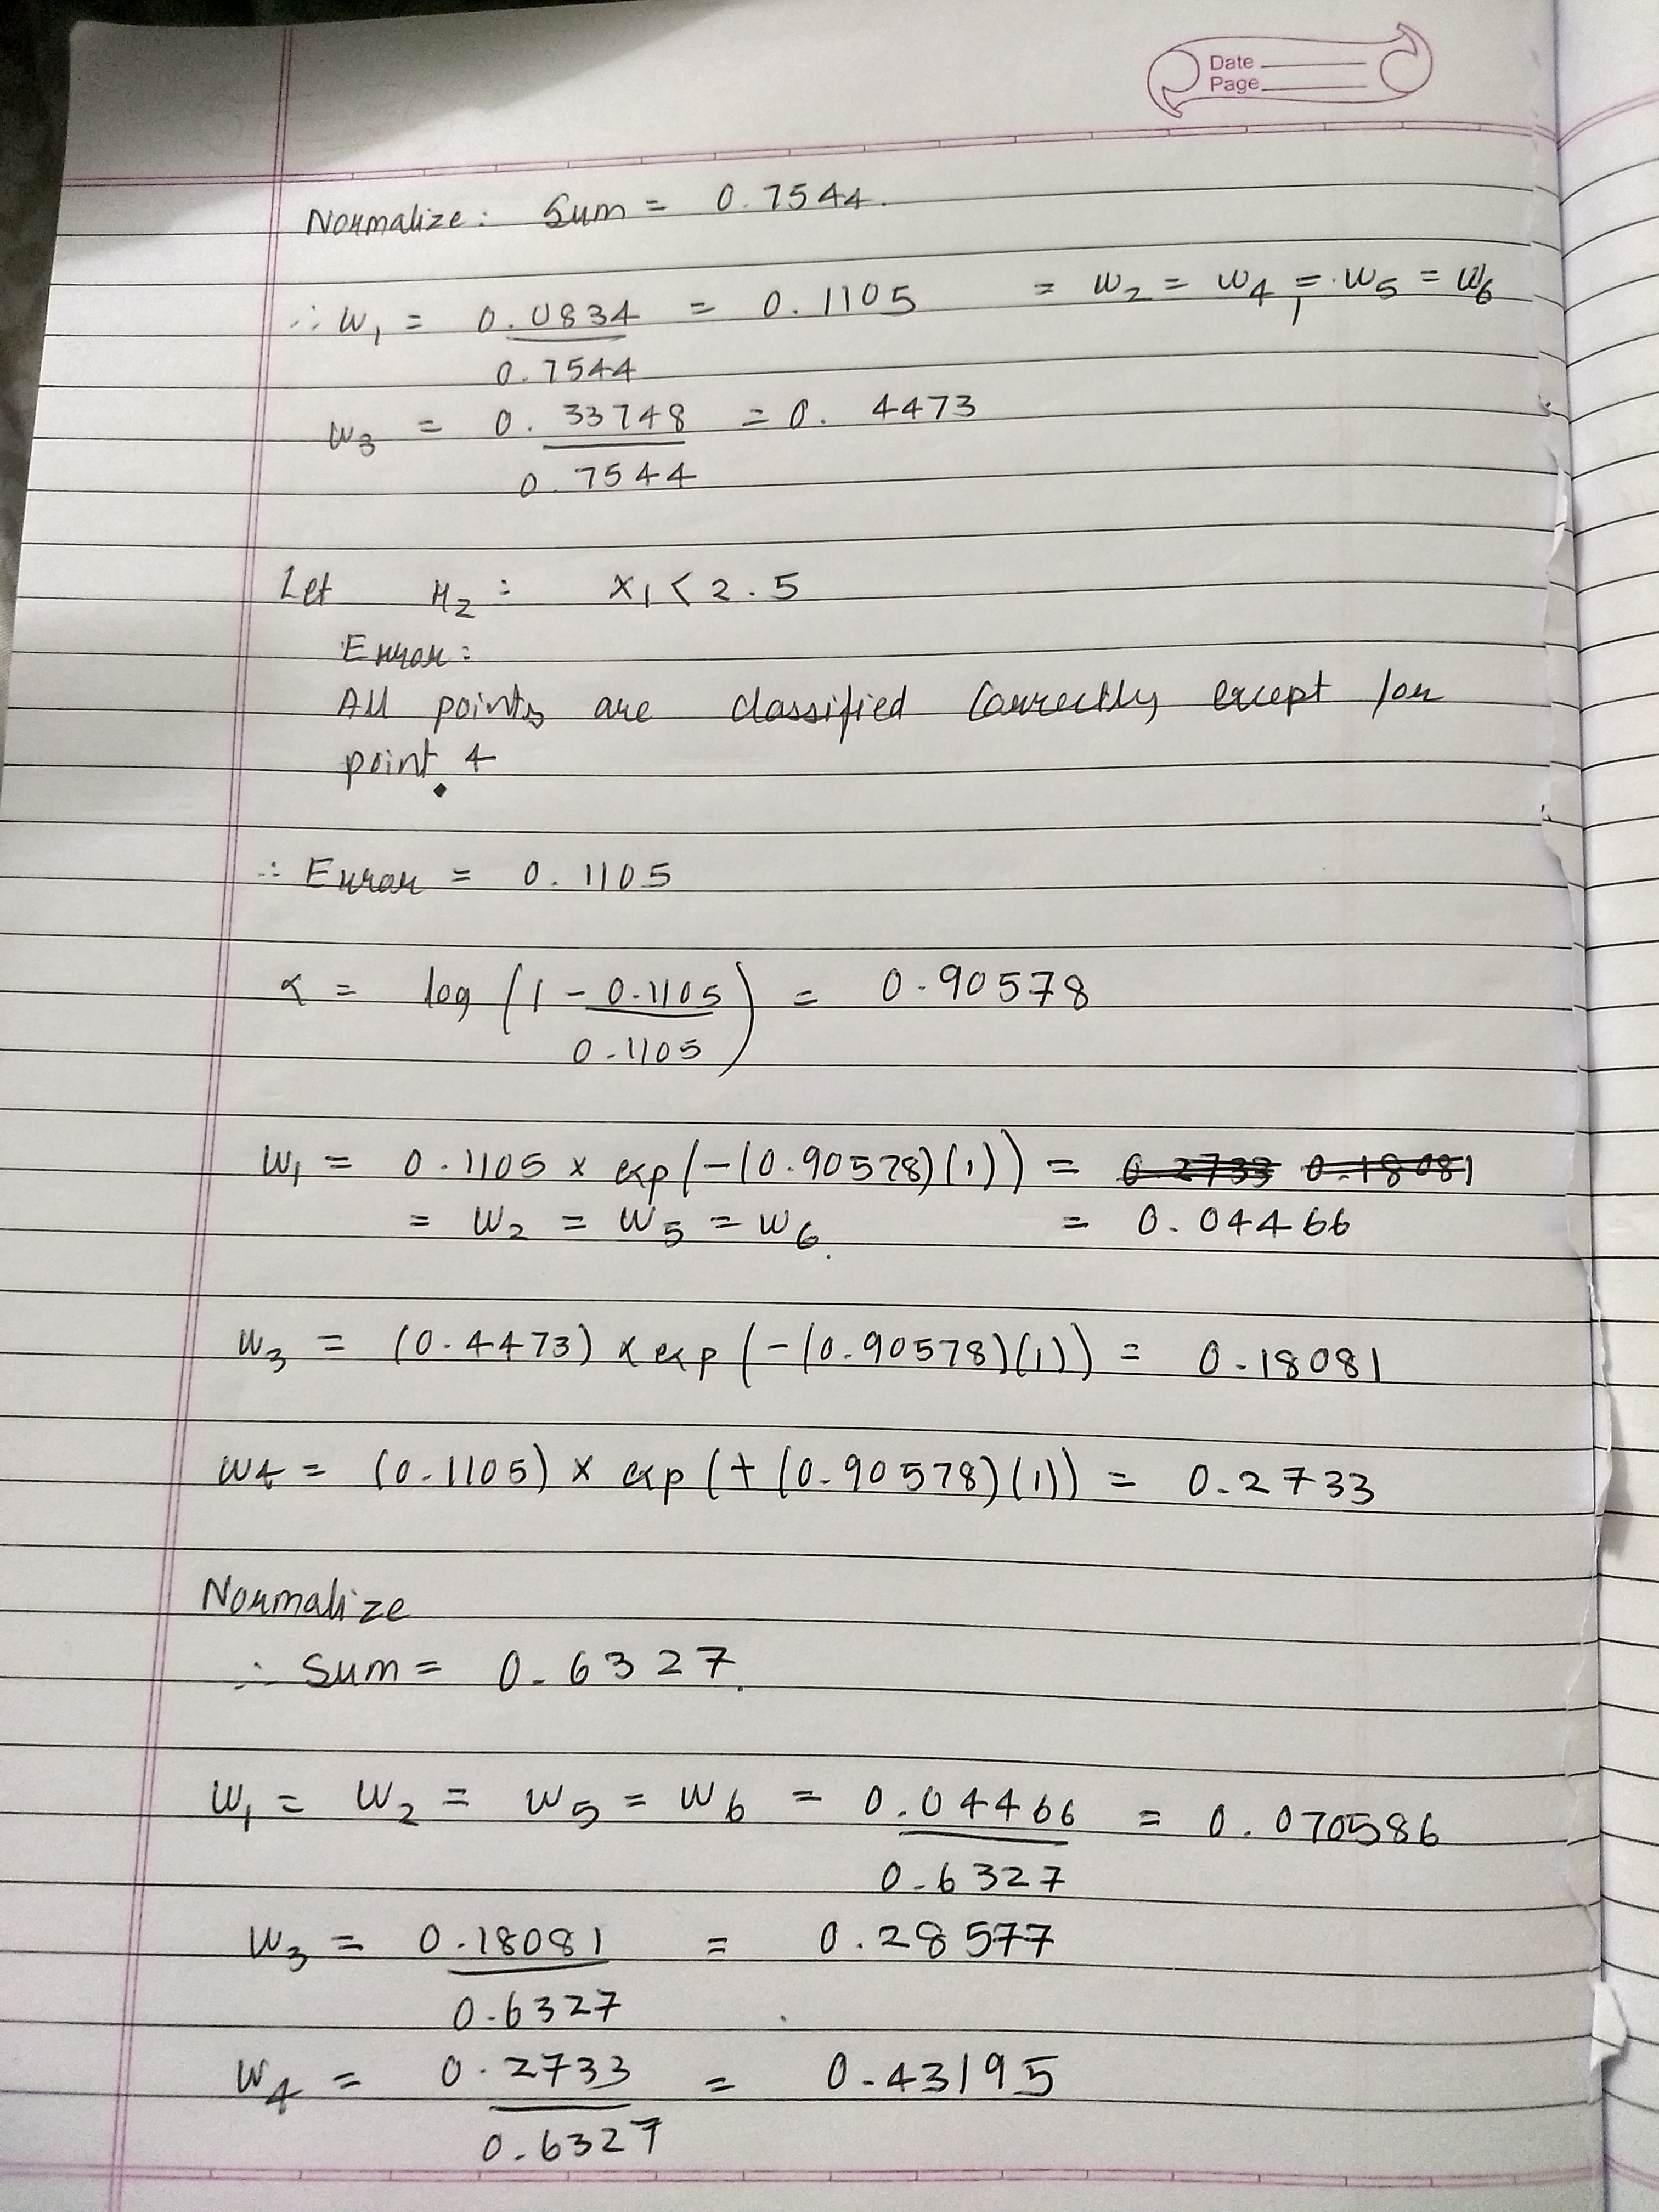 Date
Page
Normalize: Sum = 0.7544.
∴ W1 = 0.0834 / 0.7544 = 0.1105 = W2 = W4 = W5 = W6
W3 = 0.33748 / 0.7544 = 0.4473
Let H2: X1 < 2.5
Error:
All points are classified correctly except for
point 4
∴ Error = 0.1105
α = log (1 - 0.1105 / 0.1105) = 0.90578
W1 = 0.1105 × exp(-(0.90578)(1)) = 0.2733 0.18081
= W2 = W5 = W6. = 0.04466
W3 = (0.4473) × exp(-(0.90578)(1)) = 0.18081
W4 = (0.1105) × exp(+(0.90578)(1)) = 0.2733
Normalize
∴ Sum = 0.6327.
W1 = W2 = W5 = W6 = 0.04466 / 0.6327 = 0.070586
W3 = 0.18081 / 0.6327 = 0.28577
W4 = 0.2733 / 0.6327 = 0.43195